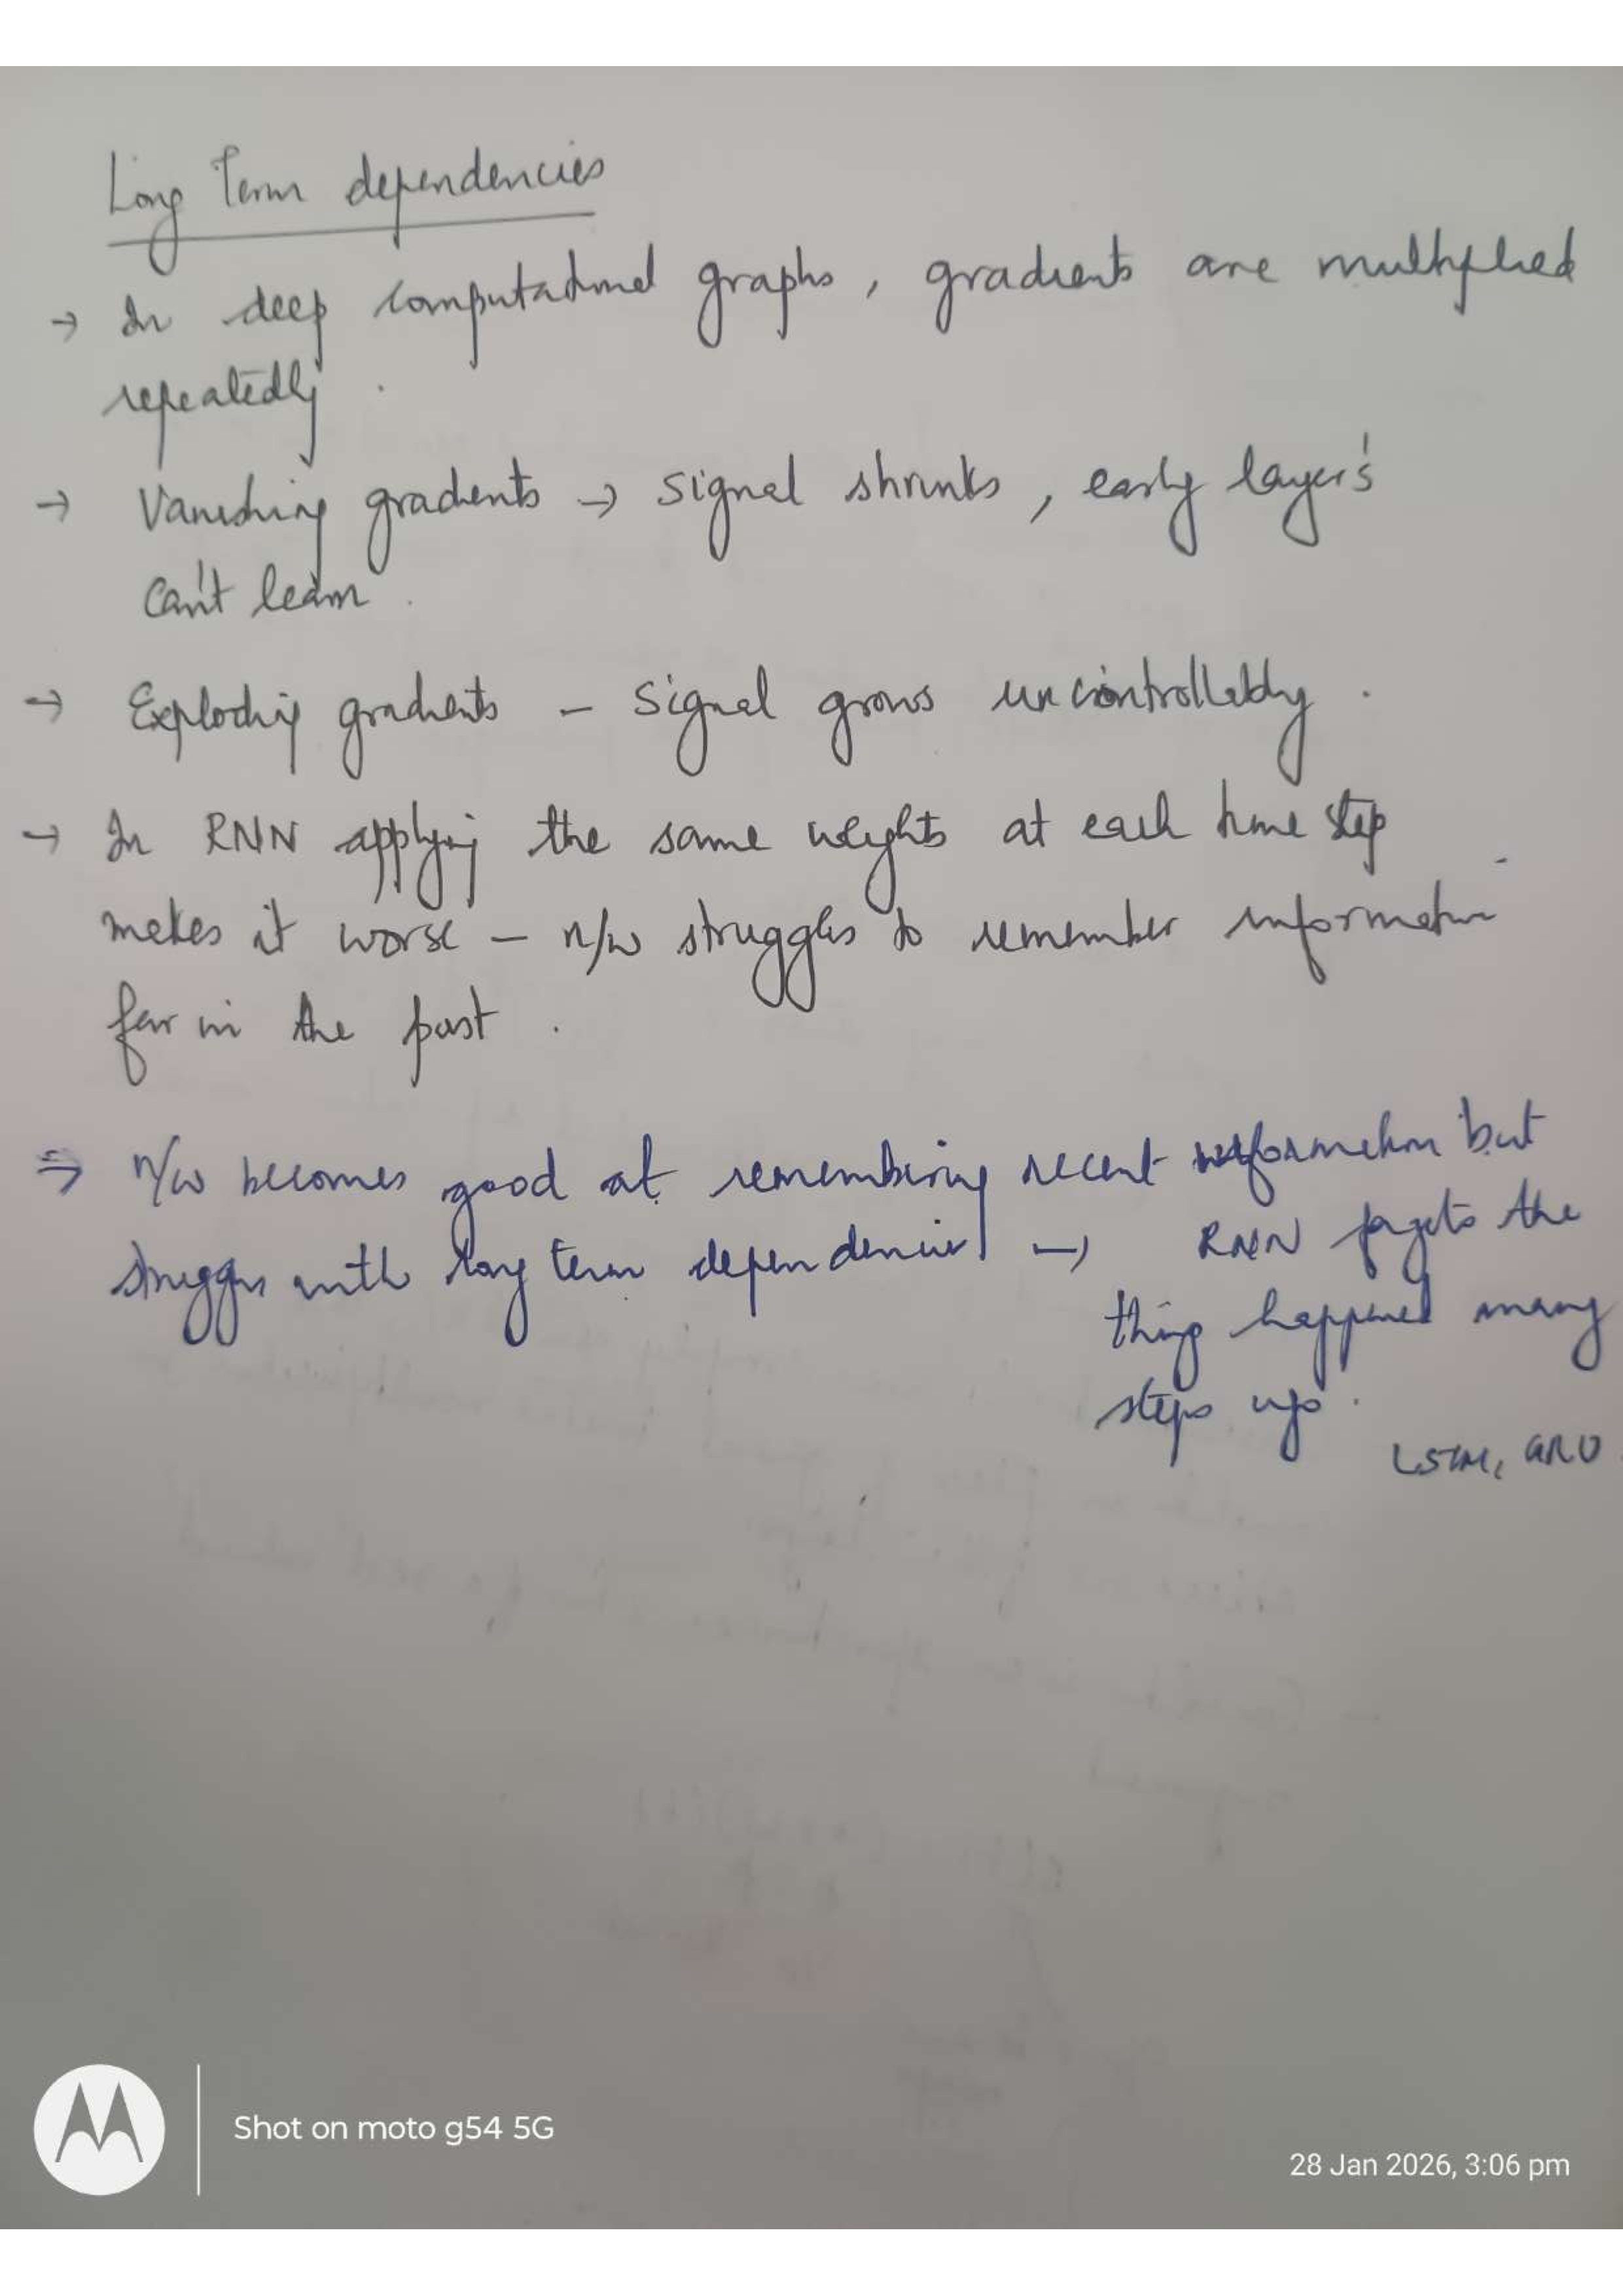 Long Term dependencies
→ In deep computational graphs, gradients are multiplied
repeatedly.
→ Vanishing gradients → signal shrinks, early layer's
can't learn.
→ Exploding gradients - signal grows uncontrollably.
→ In RNN applying the same weights at each time step
makes it worse - n/w struggles to remember information
far in the past.
⇒ n/w becomes good at remembering recent information but
struggles with long term dependencies → RNN forgets the
thing happened many
steps ago.
LSTM, GRU
Shot on moto g54 5G
28 Jan 2026, 3:06 pm